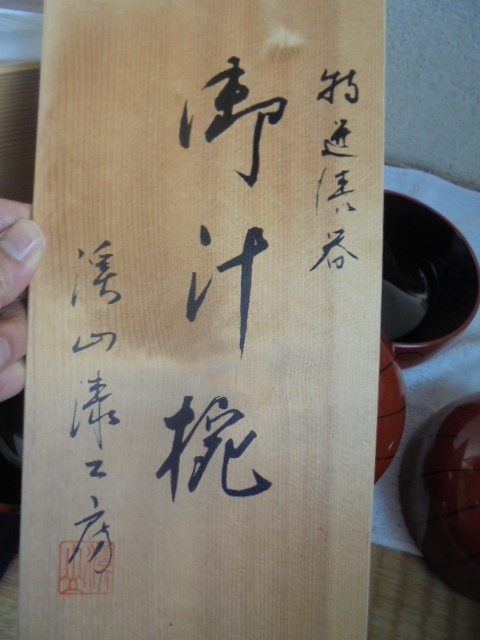 特選漆器
御汁椀
渓山漆工房